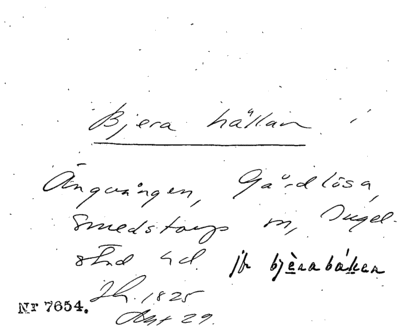 Bjera hällan
Ängvången, Gårdlösa,
Smedstorps sn, Ingel-
stad hd. jfr bjèrabáken
Nr 7654.
1825
Akt 29.